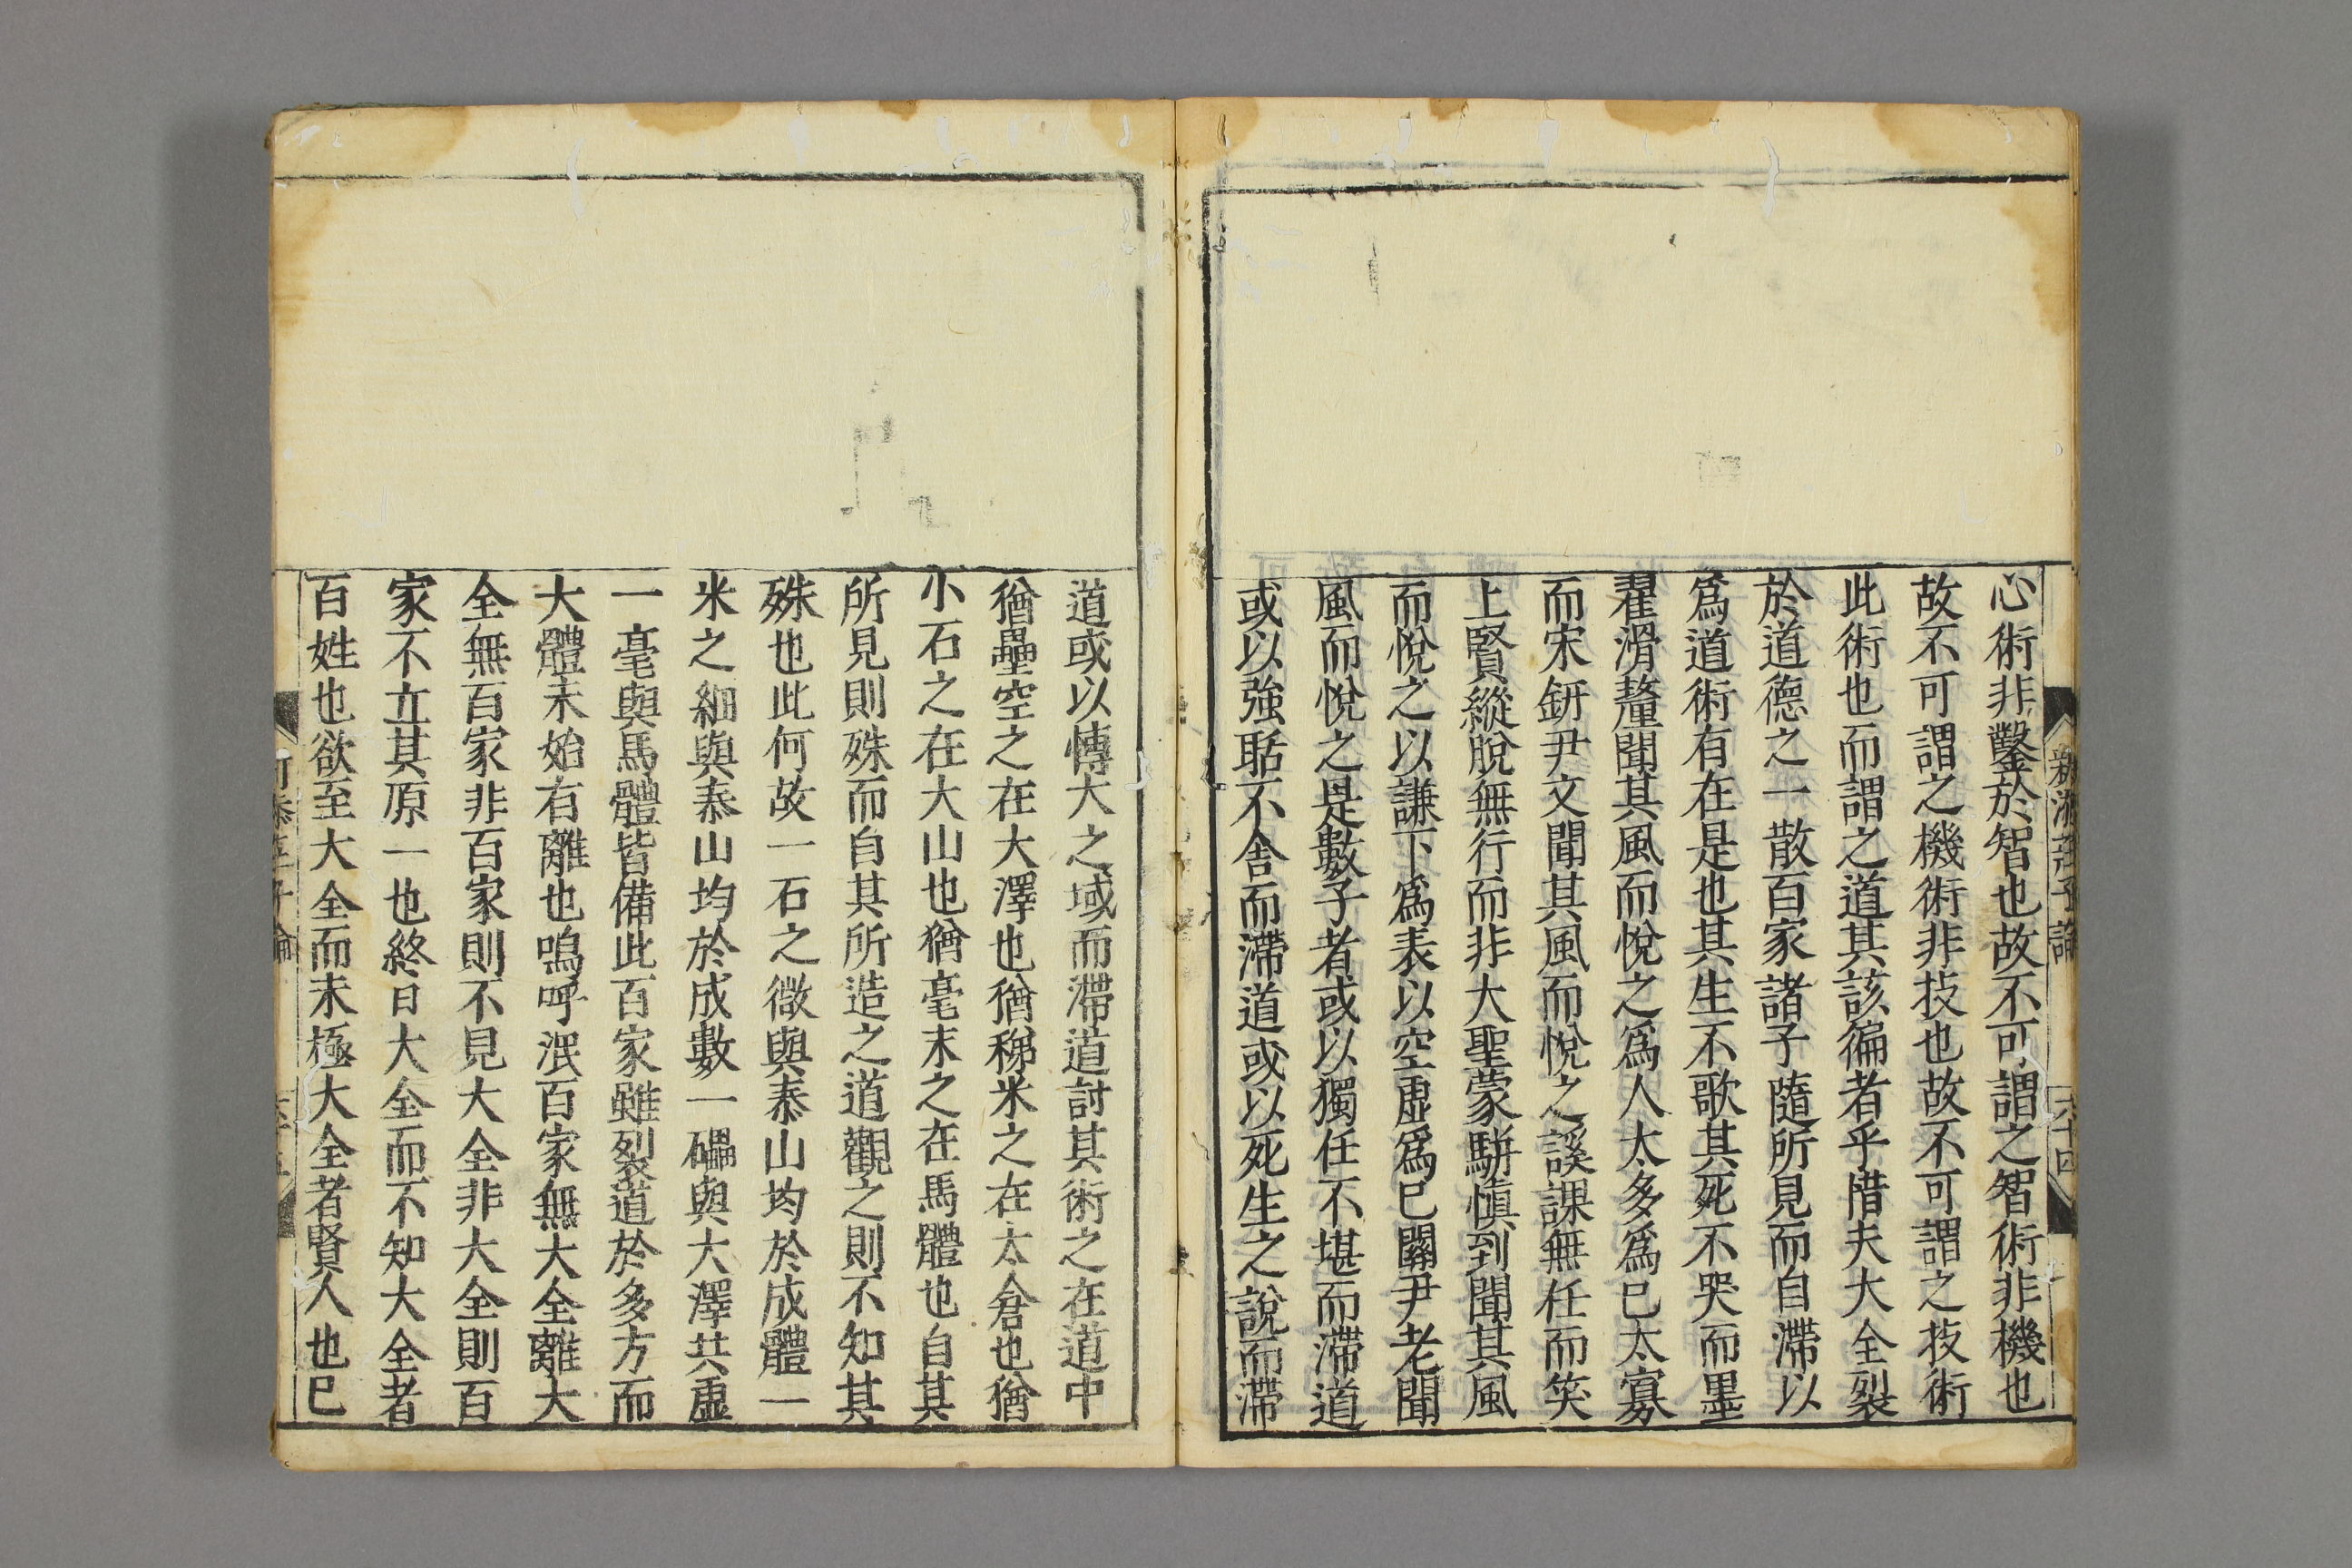 心術非鑿於智也故不可謂之智術非機也
故不可謂之機術非技也故不可謂之技術
此術也而謂之道其該徧者乎惜夫大全裂
於道德之一散百家諸子隨所見而自滯以
爲道術有在是也其生不歌其死不哭而墨
翟滑釐聞其風而悅之爲人太多爲巳太寡
而宋鈃尹文聞其風而悅之謑課無任而笑
上賢縱脫無行而非大聖蒙駢愼到聞其風
而悅之以謙下爲表以空虛爲巳關尹老聞
風而悅之是數子者或以獨任不堪而滯道
或以強聒不舍而滯道或以死生之說而滯
道或以慱大之域而滯道討其術之在道中
猶罍空之在大澤也猶稊米之在太倉也猶
小石之在大山也猶毫末之在馬體也自其
所見則殊而自其所造之道觀之則不知其
殊也此何故一石之微與泰山均於成體一
米之細與泰山均於成數一礧與大澤共虛
一毫與馬體皆備此百家雖裂道於多方而
大體未始有離也嗚呼泯百家無大全離大
全無百家非百家則不見大全非大全則百
家不立其原一也終日大全而不知大全者
百姓也欲至大全而未極大全者賢人也巳